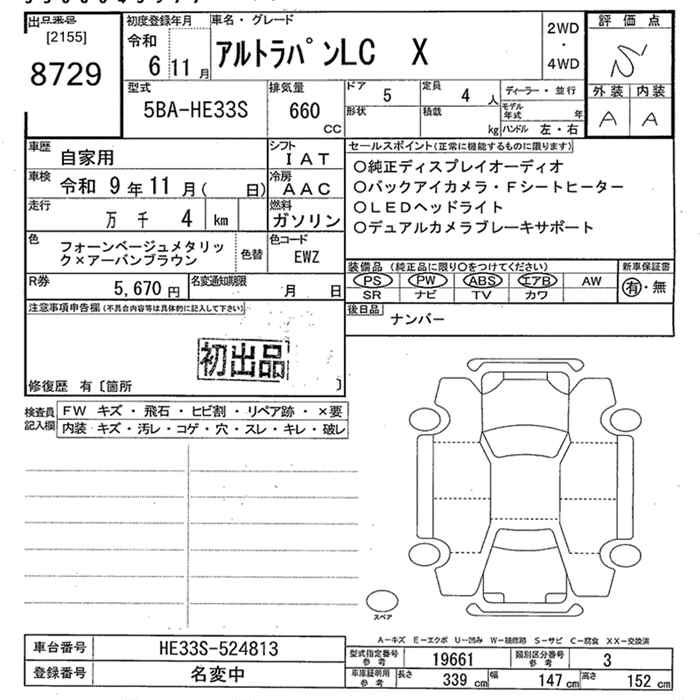 出品番号
[2155]
8729
初度登録年月
令和
6 11 月
車名・グレード
アルトラパンLC X
2WD
・
4WD
評価点
S
外装 内装
A A
型式
5BA-HE33S
排気量
660
CC
ドア
5
定員
4 人
形状
積載
kg
ディーラー・並行
モデル年式 年
ハンドル 左・右
車歴
自家用
シフト
IAT
車検
令和 9年11月( 日)
冷房
AAC
走行
万 千 4 km
燃料
ガソリン
色
フォーンベージュメタリッ
ク×アーバンブラウン
色替
色コード
EWZ
R券
5,670 円
名変通知期限
月 日
セールスポイント(正常に機能するものに限ります)
○純正ディスプレイオーディオ
○バックアイカメラ・Fシートヒーター
○LEDヘッドライト
○デュアルカメラブレーキサポート
装備品 (純正品に限り○をつけてください)
PS PW ABS エアB AW
SR ナビ TV カワ
新車保証書
有・無
後日品
ナンバー
注意事項申告欄(不具合内容等は具体的に記入して下さい)
初出品
修復歴 有〔箇所 〕
検査員
記入欄
FW キズ・飛石・ヒビ割・リペア跡・×要
内装 キズ・汚レ・コゲ・穴・スレ・キレ・破レ
スペア
A-キズ E-エクボ U-凹み W-補修跡 S-サビ C-腐食 XX-交換済
車台番号
HE33S-524813
登録番号
名変中
型式指定番号
参考
19661
類別区分番号
参考
3
車庫証明用
参考
長さ 339 cm 幅 147 cm 高さ 152 cm